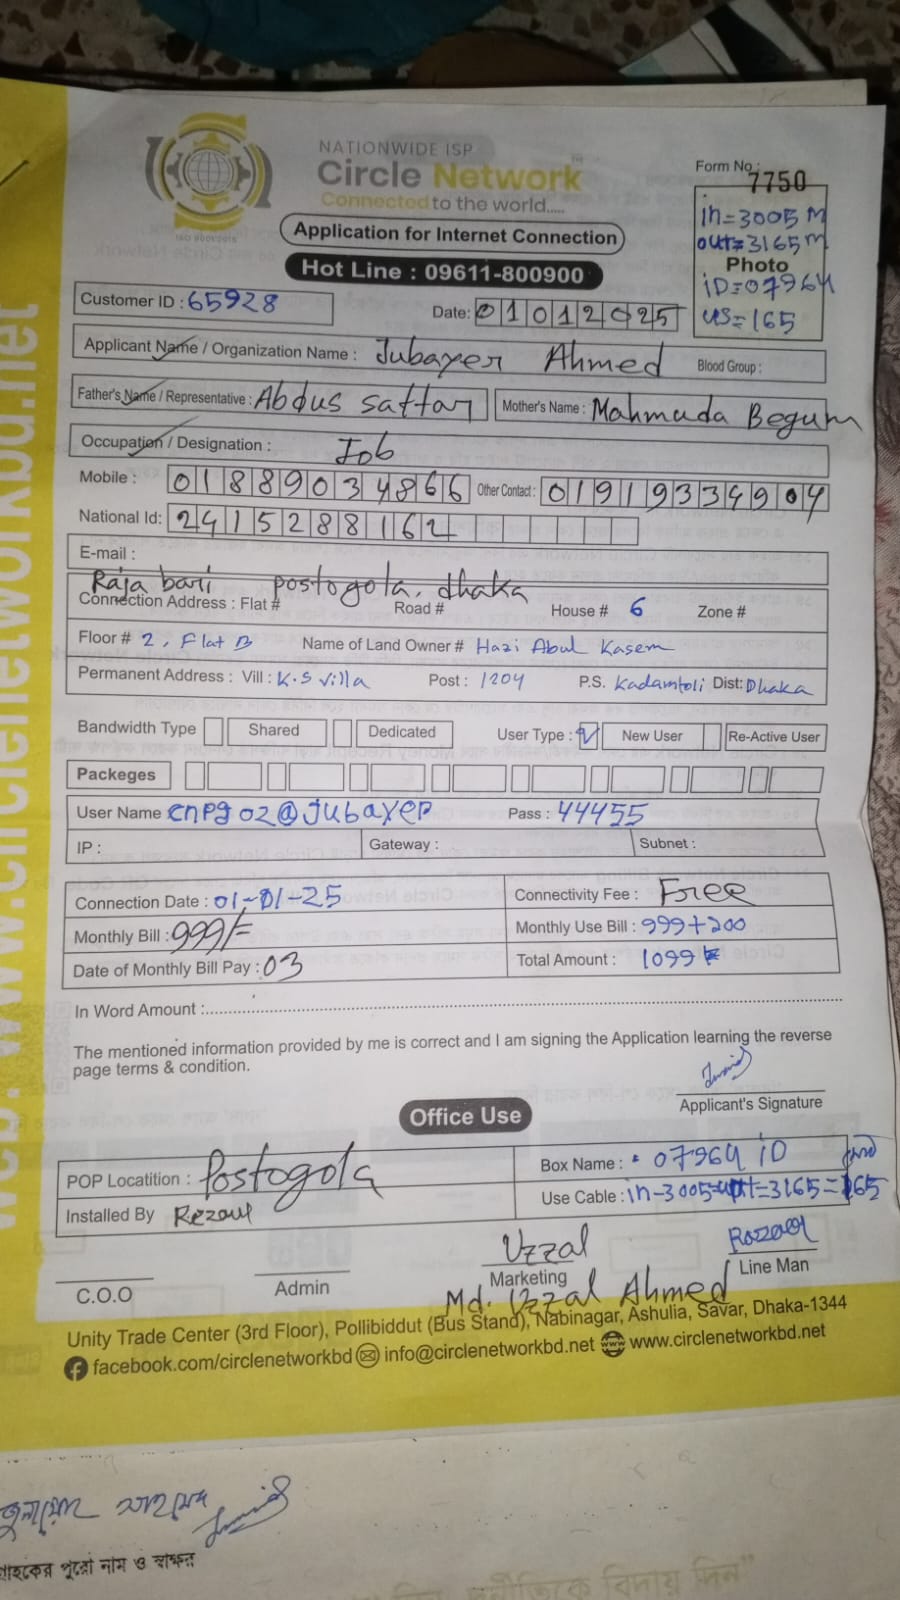 NATIONWIDE ISP
Circle Network™
Connected to the world.....
ISO 9001:2015
Form No.: 7750
in=3005 m
out=3165 m
Photo
iD=07964
us=165
Application for Internet Connection
Hot Line : 09611-800900
Customer ID : 65928
Date: 01012025
Applicant Name / Organization Name : Jubayer Ahmed Blood Group :
Father's Name / Representative : Abdus Sattar Mother's Name : Mahmuda Begum
Occupation / Designation : Job
Mobile : 01889034866 Other Contact : 01919334904
National Id: 2415288162
E-mail :
Raja bari postogola, dhaka
Connection Address : Flat # Road # House # 6 Zone #
Floor # 2, Flat B Name of Land Owner # Hazi Abul Kasem
Permanent Address : Vill : K.S villa Post : 1204 P.S. Kadamtoli Dist: Dhaka
Bandwidth Type Shared Dedicated User Type : New User Re-Active User
Packeges
User Name cnpg02@jubayer Pass : 44455
IP : Gateway : Subnet :
Connection Date : 01-01-25 Connectivity Fee : Free
Monthly Bill : 999/= Monthly Use Bill : 999+200
Date of Monthly Bill Pay : 03 Total Amount : 1099
In Word Amount :
The mentioned information provided by me is correct and I am signing the Application learning the reverse
page terms & condition.
Applicant's Signature
Office Use
POP Locatition : Postogola Box Name : 07964 iD
Installed By Rezaul Use Cable : in-3005=out=3165=165
Uzzal
C.O.O Admin Marketing Line Man
Md. Uzzal Ahmed
Unity Trade Center (3rd Floor), Pollibiddut (Bus Stand), Nabinagar, Ashulia, Savar, Dhaka-1344
facebook.com/circlenetworkbd info@circlenetworkbd.net www.circlenetworkbd.net
web: www.circlenetworkbd.net
আহমেদ
গ্রাহকের পুরো নাম ও স্বাক্ষর